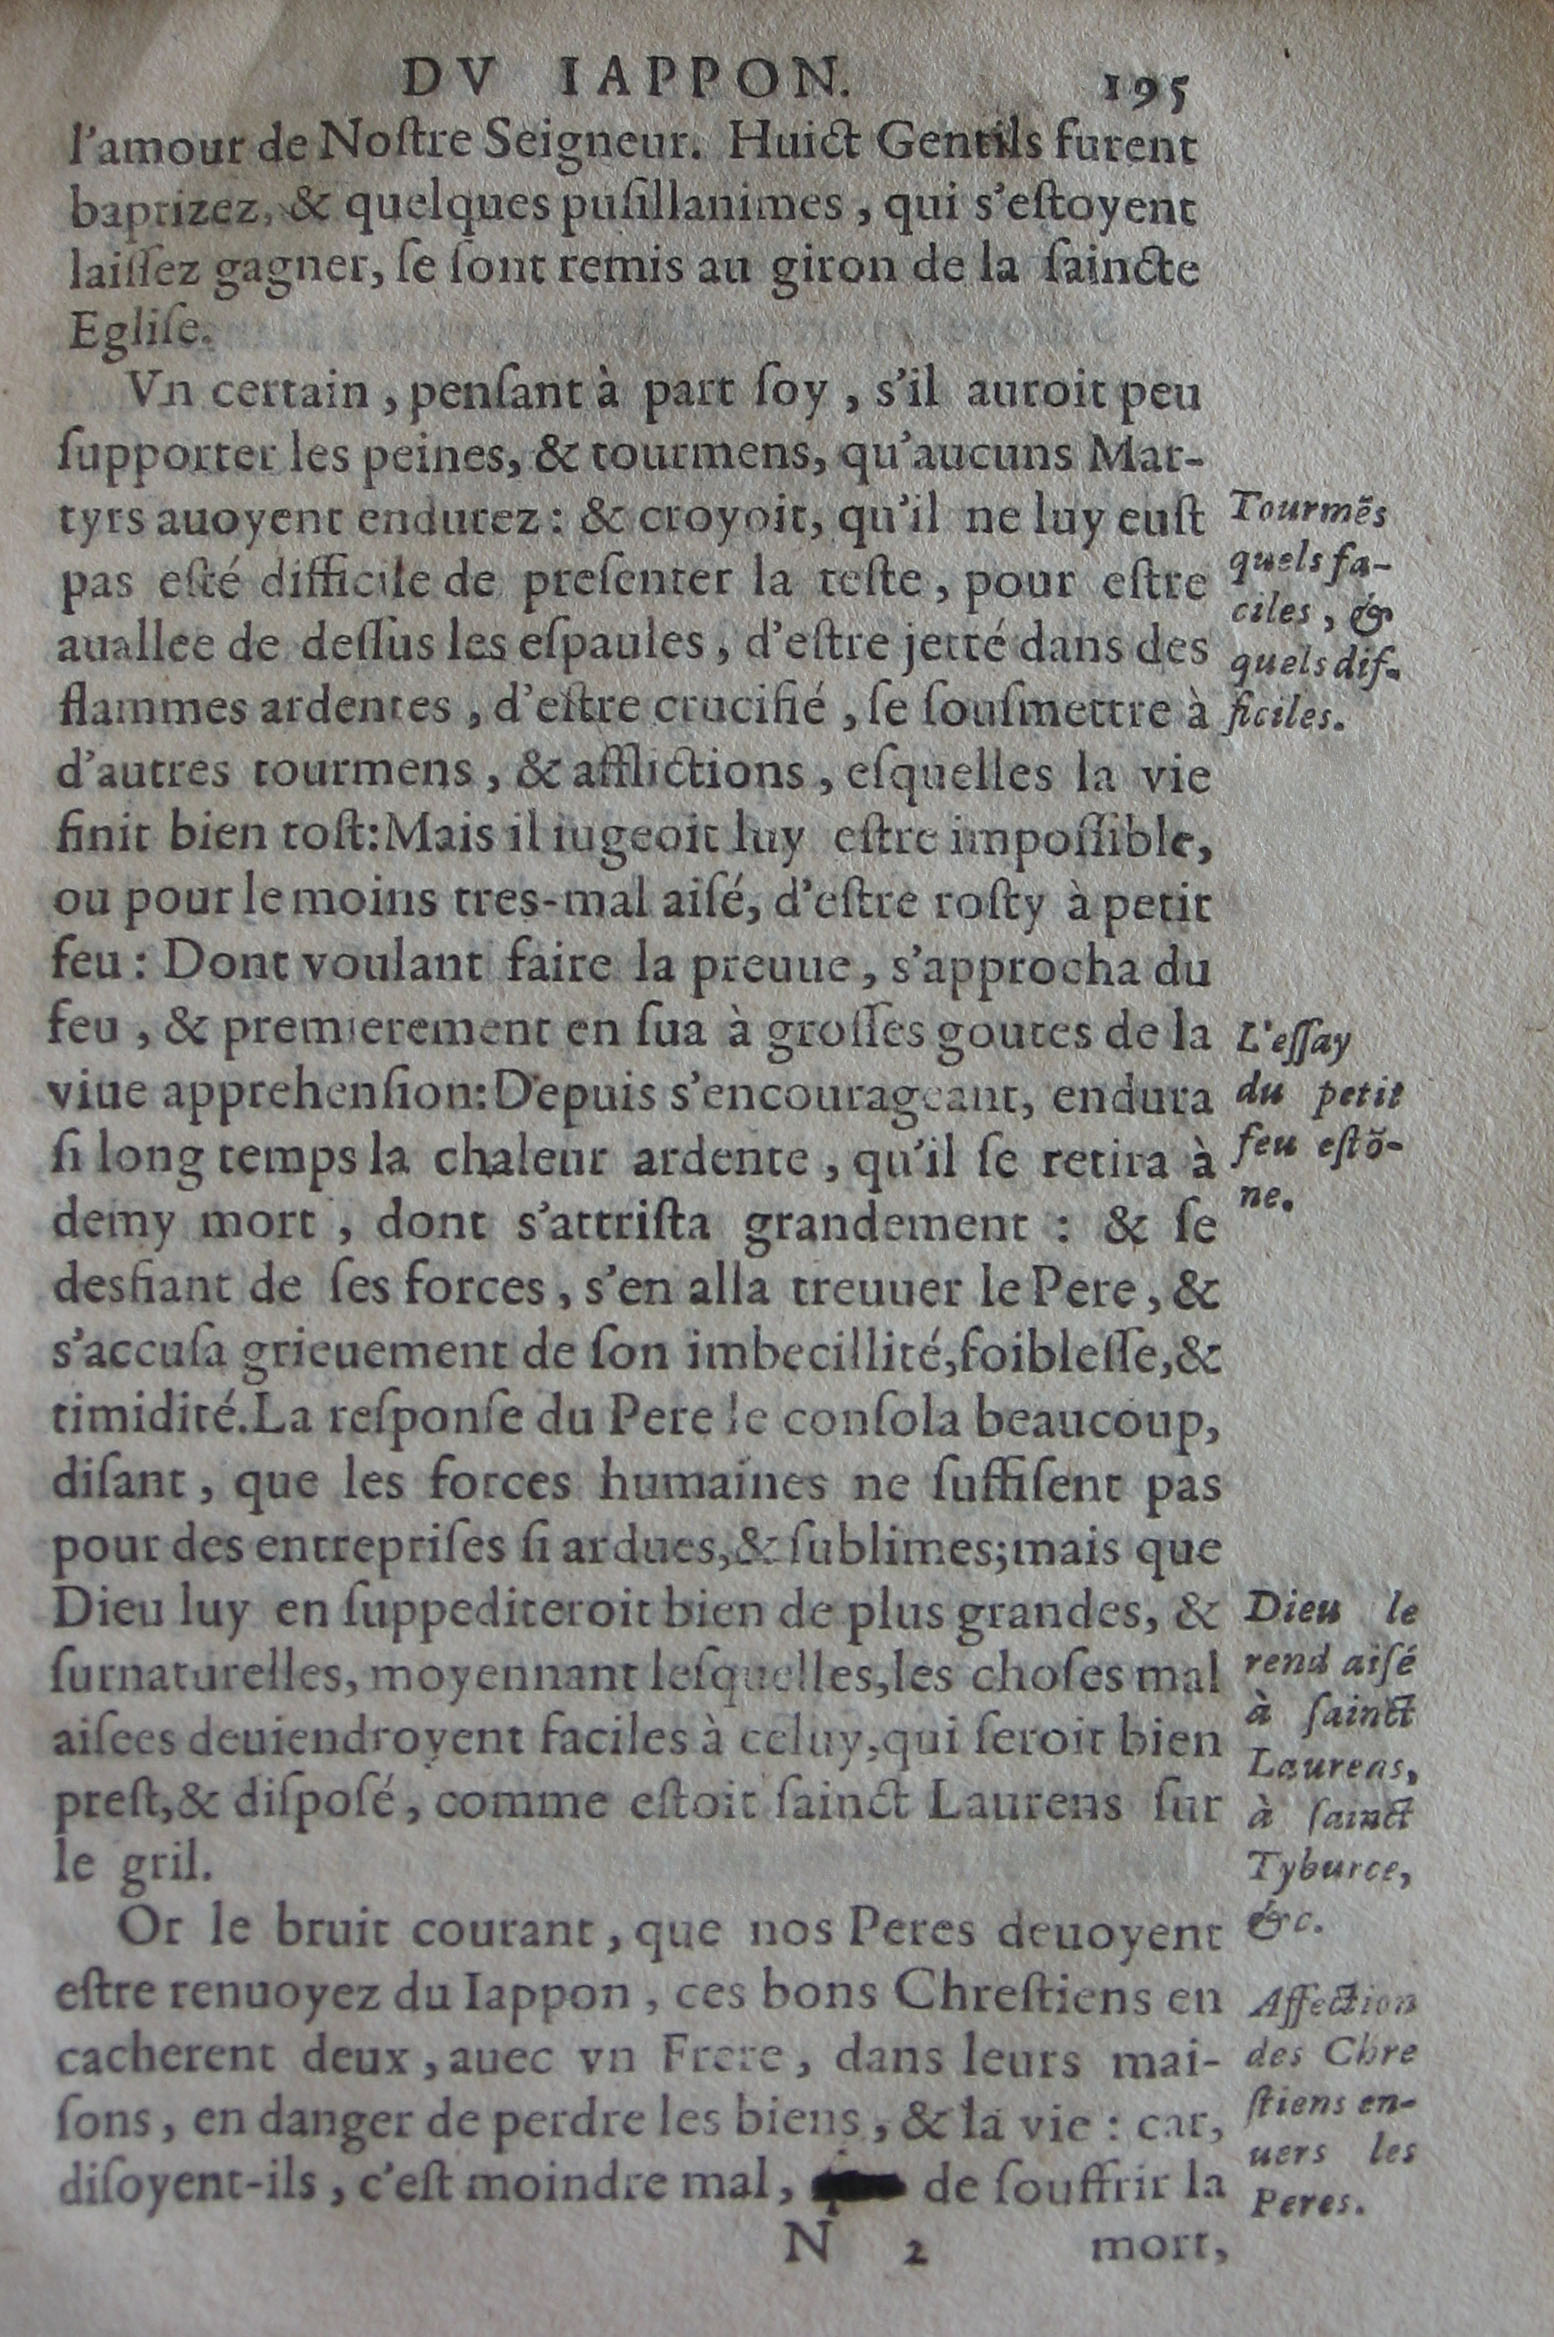 DV IAPPON. 195
l'amour de Noſtre Seigneur. Huict Gentils furent
baptizez, & quelques puſillanimes, qui s'eſtoyent
laiſſez gagner, ſe ſont remis au giron de la ſaincte
Egliſe.
Vn certain, penſant à part ſoy, s'il auroit peu
ſupporter les peines, & tourmens, qu'aucuns Mar-
tyrs auoyent endurez: & croyoit, qu'il ne luy euſt
pas eſté difficile de preſenter la teſte, pour eſtre
auallee de deſſus les eſpaules, d'eſtre jetté dans des
flammes ardentes, d'eſtre crucifié, ſe ſouſmettre à
d'autres tourmens, & afflictions, eſquelles la vie
finit bien toſt: Mais il iugeoit luy eſtre impoſſible,
ou pour le moins tres-mal aiſé, d'eſtre roſty à petit
feu: Dont voulant faire la preuue, s'approcha du
feu, & premierement en ſua à groſſes goutes de la
viue apprehenſion: Depuis s'encourageant, endura
ſi long temps la chaleur ardente, qu'il ſe retira à
demy mort, dont s'attriſta grandement: & ſe
desfiant de ſes forces, s'en alla treuuer le Pere, &
s'accuſa grieuement de ſon imbecillité, foibleſſe, &
timidité. La reſponſe du Pere le conſola beaucoup,
diſant, que les forces humaines ne ſuffiſent pas
pour des entrepriſes ſi ardues, & ſublimes; mais que
Dieu luy en ſuppediteroit bien de plus grandes, &
ſurnaturelles, moyennant leſquelles, les choſes mal
aiſees deuiendroyent faciles à celuy, qui ſeroit bien
preſt, & diſpoſé, comme eſtoit ſainct Laurens ſur
le gril.
Or le bruit courant, que nos Peres deuoyent
eſtre renuoyez du Iappon, ces bons Chreſtiens en
cacherent deux, auec vn Frere, dans leurs mai-
ſons, en danger de perdre les biens, & la vie: car,
diſoyent-ils, c'eſt moindre mal, de ſouffrir la
N 2 mort,
Tourmẽs
quels fa-
ciles, &
quels dif-
ficiles.
L'eſſay
du petit
feu eſtõ-
ne.
Dieu le
rend aiſé
à ſainct
Laurens,
à ſainct
Tyburce,
&c.
Affection
des Chre
ſtiens en-
uers les
Peres.